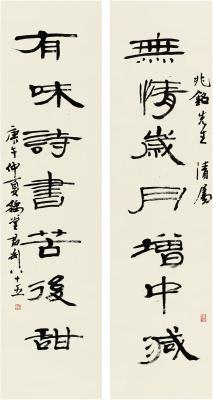 兆銘先生清屬
無情歲月增中減
有味詩書苦後甜
庚午仲夏
八十五